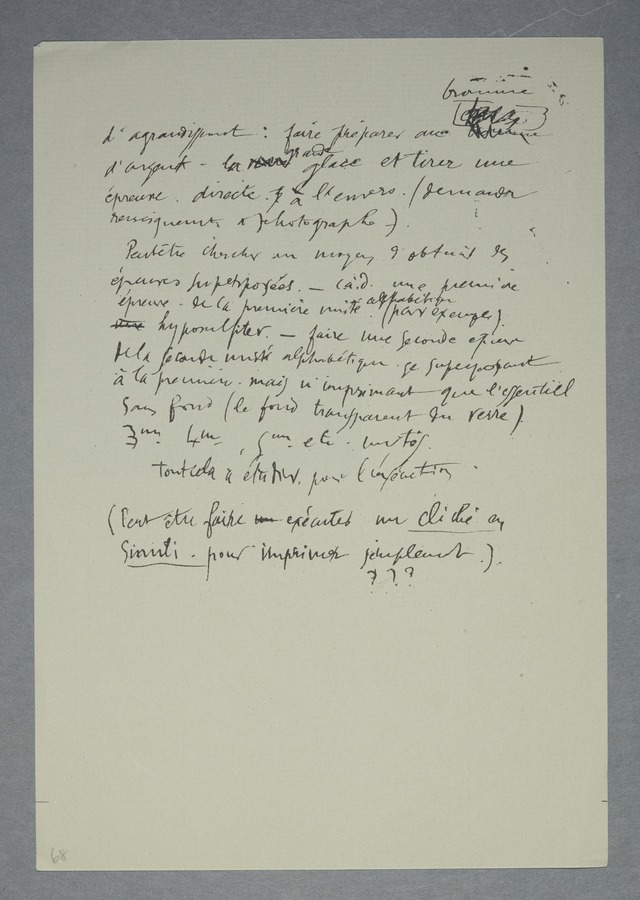 bromure
d'agrandissement : faire préparer au
d'argent - la grande glace et tirer une
épreuve. directe. à l'envers. (demander
renseignements à photographe).
Peut être chercher un moyen d'obtenir des
épreuves superposées. — c.à.d. une première
épreuve. de la première unité alphabétique (par exemple).
hyposulfiter. — faire une seconde épreuve
de la seconde unité alphabétique. se superposant
à la première. mais n'imprimant que l'essentiel
sans fond (le fond transparent du verre).
3me 4me, 5me etc. unités.
tout cela à étudier. pour l'exécution.
(Peut être faire exécuter un cliché en
Simili. pour imprimer simplement.).
? ? ?
68